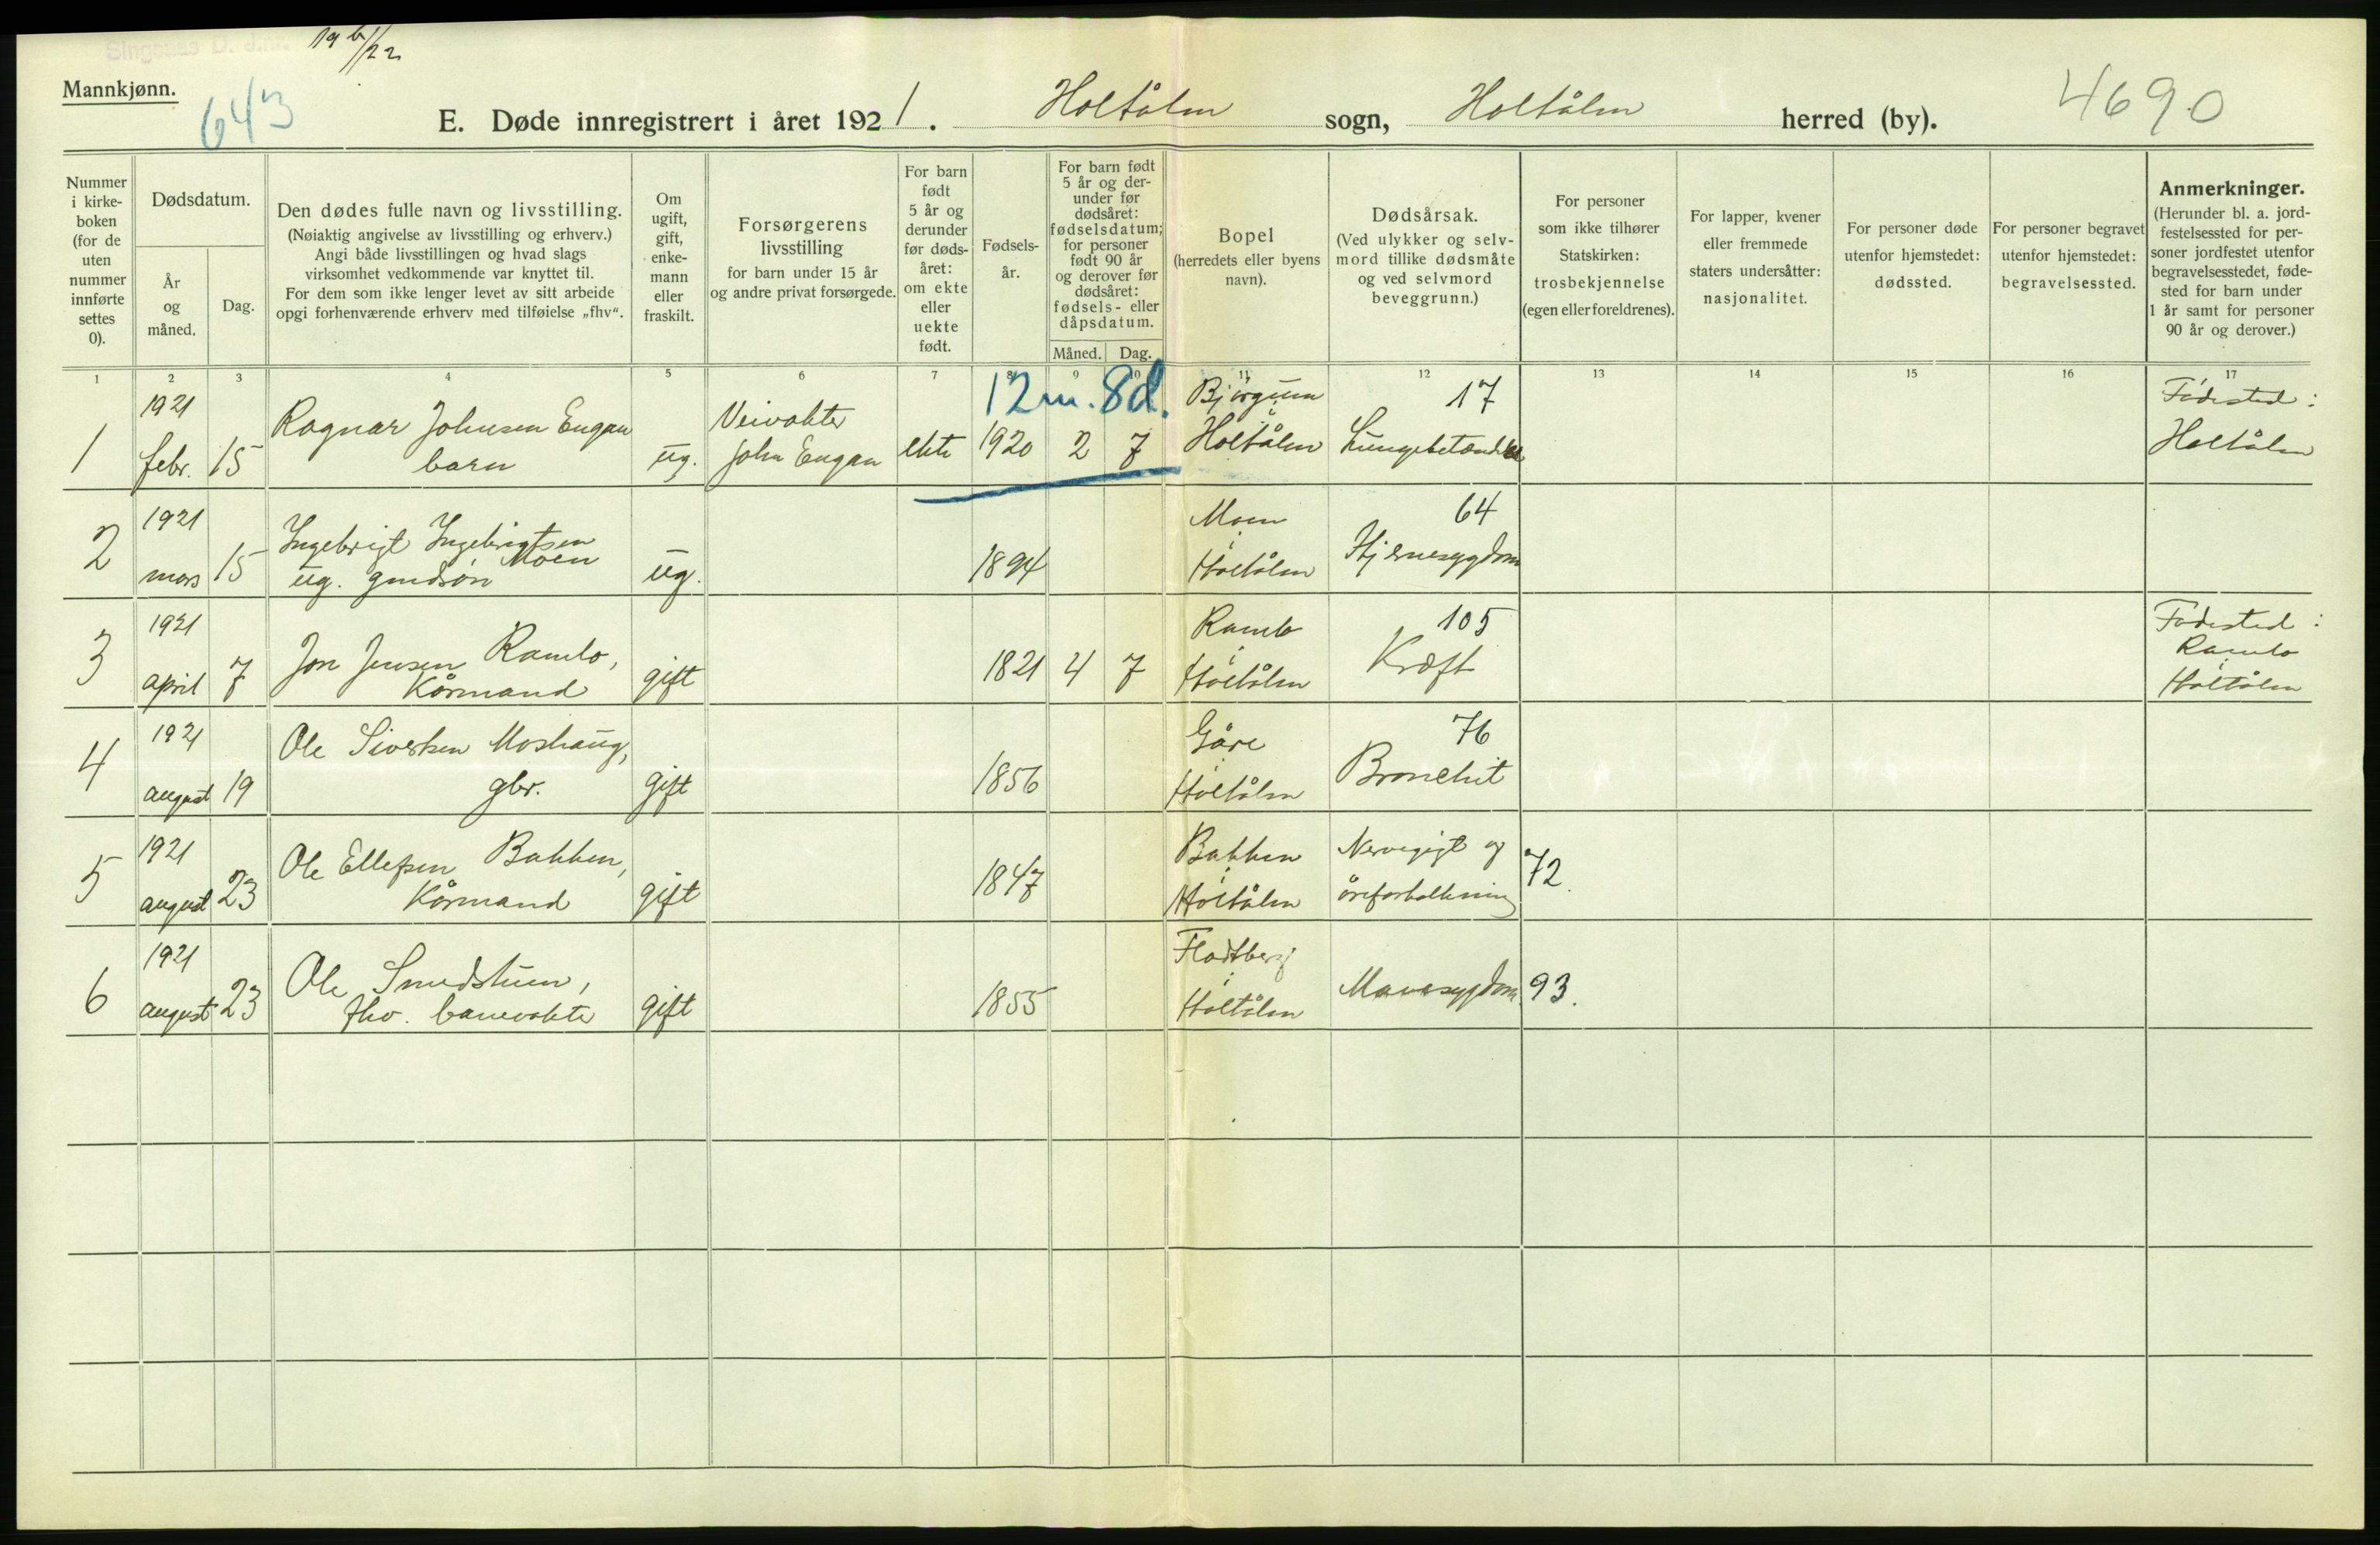 Singsaas D. J.nr. 19 6/22
Mannkjønn.
643
E. Døde innregistrert i året 1921. Holtålen sogn, Holtålen herred (by).
4690
Nummer i kirke-boken (for de uten nummer innførte settes 0).
Dødsdatum.
År og måned.
Dag.
Den dødes fulle navn og livsstilling.
(Nøiaktig angivelse av livsstilling og erhverv.)
Angi både livsstillingen og hvad slags
virksomhet vedkommende var knyttet til.
For dem som ikke lenger levet av sitt arbeide
opgi forhenværende erhverv med tilføielse „fhv“.
Om ugift, gift, enke-mann eller fraskilt.
Forsørgerens
livsstilling
for barn under 15 år
og andre privat forsørgede.
For barn født 5 år og derunder før døds-året: om ekte eller uekte født.
Fødsels-år.
For barn født 5 år og der-under før dødsåret: fødselsdatum; for personer født 90 år og derover før dødsåret: fødsels- eller dåpsdatum.
Måned. Dag.
Bopel
(herredets eller byens
navn).
Dødsårsak.
(Ved ulykker og selv-
mord tillike dødsmåte
og ved selvmord
beveggrunn.)
For personer
som ikke tilhører
Statskirken:
trosbekjennelse
(egen eller foreldrenes).
For lapper, kvener
eller fremmede
staters undersåtter:
nasjonalitet.
For personer døde
utenfor hjemstedet:
dødssted.
For personer begravet
utenfor hjemstedet:
begravelsessted.
Anmerkninger.
(Herunder bl. a. jord-
festelsessted for per-
soner jordfestet utenfor
begravelsesstedet, føde-
sted for barn under
1 år samt for personer
90 år og derover.)
1 2 3 4 5 6 7 8 9 10 11 12 13 14 15 16 17
12 m. 8 d.
1 1921 febr. 15 Ragnar Johnsen Engan barn ug. Veivokter John Engan ekte 1920 2 7 Bjørgum Holtålen 17 Lungebetændelse Fødested: Holtålen
2 1921 mars 15 Ingebrigt Ingebrigtsen Moen ug. gmdsøn ug. 1894 Moen i Holtålen 64 Hjernesygdom
3 1921 april 7 Jon Jensen Ramlo, Kårmand gift 1821 4 7 Ramlo i Holtålen 105 Kræft Fødested: Ramlo i Holtålen
4 1921 august 19 Ole Sivertsen Moshaug, gbr. gift 1856 Gåre i Holtålen 76 Bronchit
5 1921 august 23 Ole Ellefsen Bakken, Kårmand gift 1847 Bakken i Holtålen Nervegigt og åreforkalkning 72.
6 1921 august 23 Ole Smedstuen, fhv. banevokter gift 1855 Flodtberg i Holtålen Mavesygdom 93.